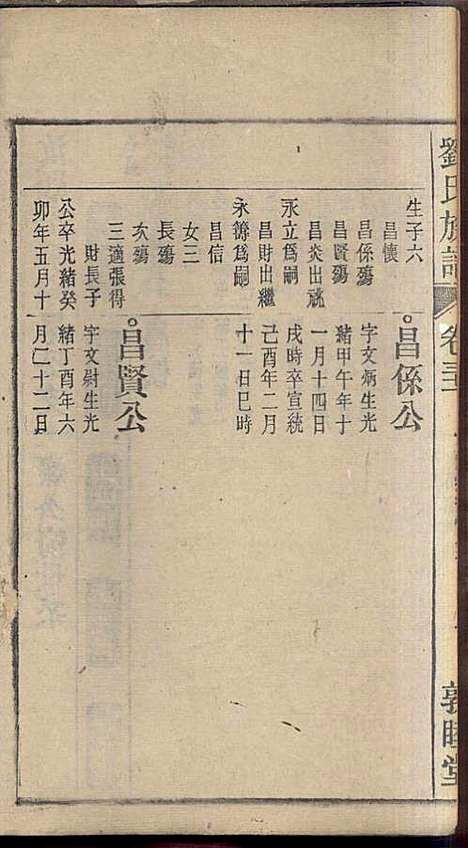 劉氏族譜
卷三
敦睦堂
生子六
昌懷
昌係殤
昌賢殤
昌炎出祧
永立爲嗣
昌財出繼
永籌爲嗣
昌信
女三
長殤
次殤
三適張得
財長子
公卒光緒癸
卯年五月十
昌係公
字文炳生光
緒甲午年十
一月十四日
戌時卒宣統
己酉年二月
十一日巳時
昌賢公
字文尉生光
緒丁酉年六
月二十二日